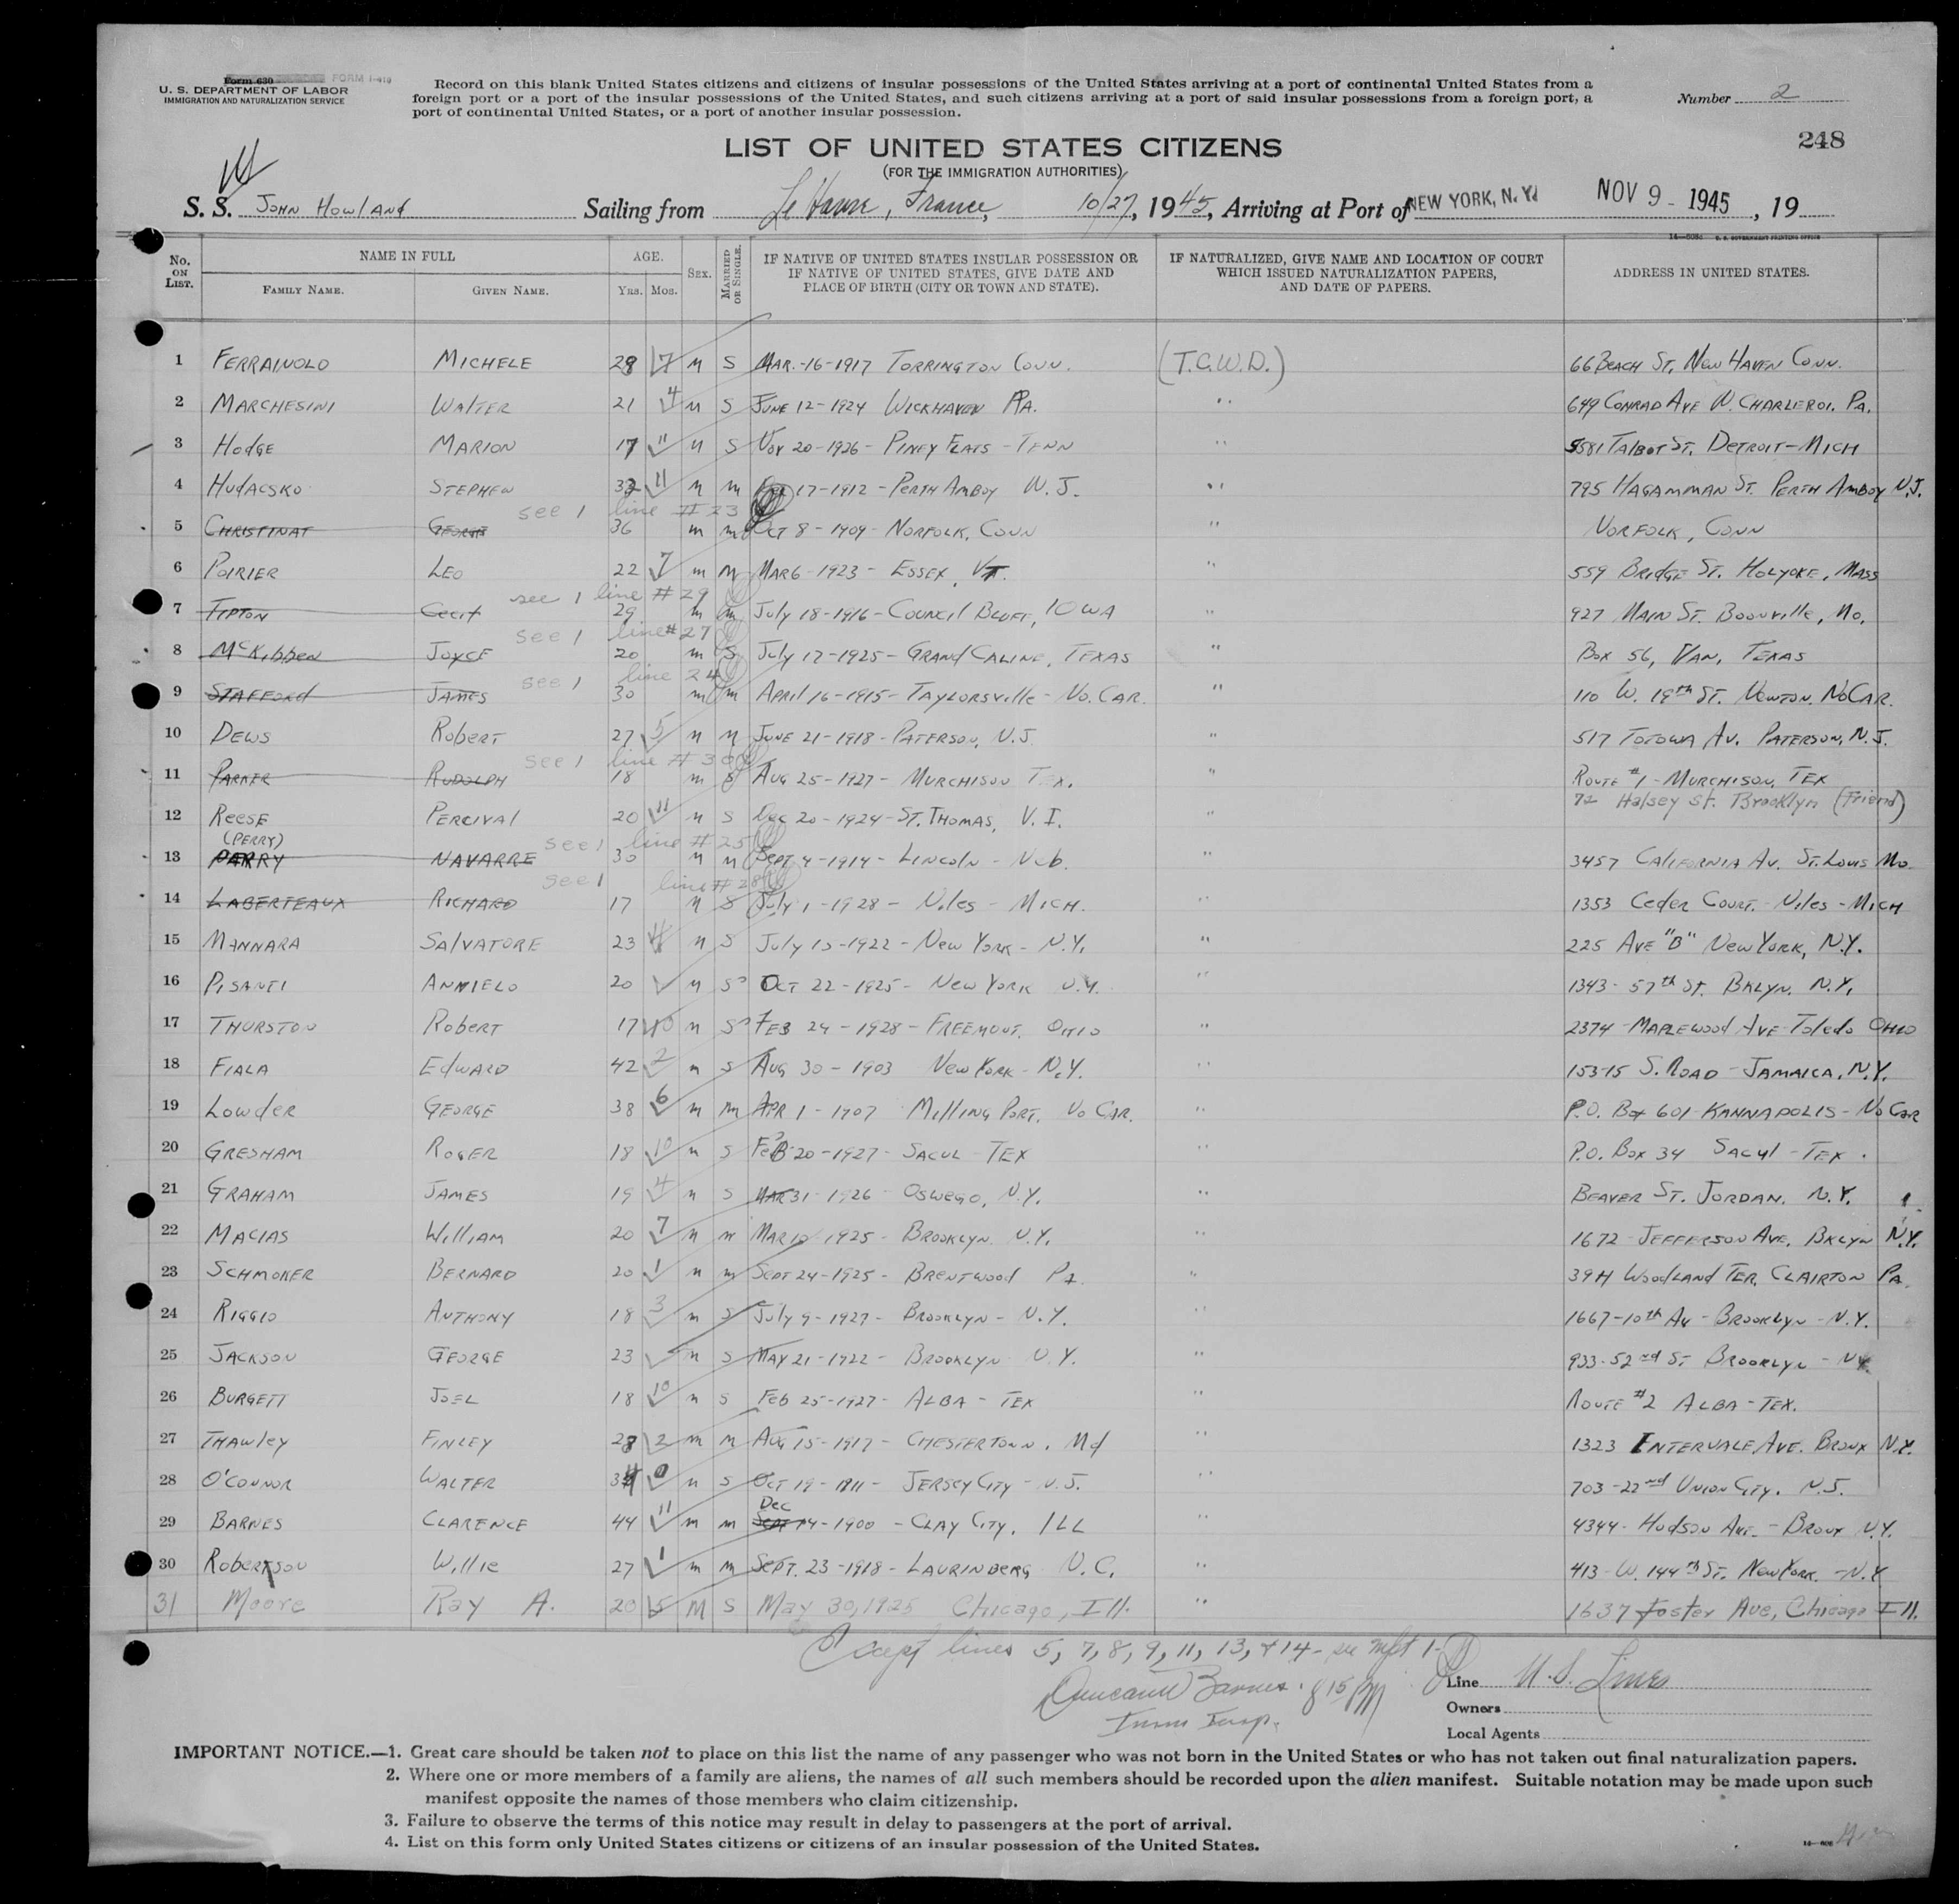 Form 630 FORM I-410
U. S. DEPARTMENT OF LABOR
IMMIGRATION AND NATURALIZATION SERVICE
Record on this blank United States citizens and citizens of insular possessions of the United States arriving at a port of continental United States from a
foreign port or a port of the insular possessions of the United States, and such citizens arriving at a port of said insular possessions from a foreign port, a
port of continental United States, or a port of another insular possession.
Number 2
248
LIST OF UNITED STATES CITIZENS
(FOR THE IMMIGRATION AUTHORITIES)
S. S. JOHN HOWLAND Sailing from Le Havre, France, 10/27, 1945, Arriving at Port of NEW YORK, N. Y. NOV 9 - 1945, 19
No. ON LIST. NAME IN FULL AGE. SEX. MARRIED OR SINGLE. IF NATIVE OF UNITED STATES INSULAR POSSESSION OR IF NATIVE OF UNITED STATES, GIVE DATE AND PLACE OF BIRTH (CITY OR TOWN AND STATE). IF NATURALIZED, GIVE NAME AND LOCATION OF COURT WHICH ISSUED NATURALIZATION PAPERS, AND DATE OF PAPERS. ADDRESS IN UNITED STATES.
FAMILY NAME. GIVEN NAME. YRS. MOS.
1 FERRAIUOLO MICHELE 28 7 M S MAR.-16-1917 TORRINGTON CONN. (T.C.W.D.) 66 BEACH ST. NEW HAVEN CONN.
2 MARCHESINI WALTER 21 4 M S JUNE 12-1924 WICKHAVEN PA. " 649 CONRAD AVE N. CHARLEROI. PA.
3 HODGE MARION 17 11 M S NOV 20-1926 - PINEY FLATS - TENN " 5581 TALBOT ST. DETROIT - MICH
4 HUDACSKO STEPHEN 32 11 M M 17-1912 - PERTH AMBOY N.J. " 795 HAGAMMAN ST. PERTH AMBOY N.J.
see 1 line #23
5 CHRISTINAT GEORGE 36 M M OCT 8-1909 - NORFOLK, CONN " NORFOLK, CONN
6 POIRIER LEO 22 7 M M MAR 6-1923 - ESSEX, VT. " 559 BRIDGE ST. HOLYOKE, MASS
see 1 line #29
7 TIPTON Cecil 29 M M July 18-1916 - COUNCIL BLUFF, IOWA " 927 MAIN ST. BOONVILLE, MO.
see 1 line #27
8 McKibben JOYCE 20 M S July 17-1925 - GRAND CALINE, TEXAS " BOX 56, VAN, TEXAS
see 1 line 24
9 STAFFORD JAMES 30 M M APRIL 16-1915 - TAYLORSVILLE - NO. CAR. " 110 W. 19th ST. NEWTON, NO CAR.
10 DEWS ROBERT 27 5 M M JUNE 21-1918 - PATERSON, N.J " 517 TOTOWA AV. PATERSON, N.J.
see 1 line #30
11 PARKER RUDOLPH 18 M S AUG 25-1927 - MURCHISON TEX. " ROUTE #1 - MURCHISON, TEX
72 Halsey St. Brooklyn (Friend)
12 REESE PERCIVAL 20 11 M S Dec 20-1924 - ST. THOMAS, V. I. "
(PERRY) see 1 line #25
13 PARRY NAVARRE 30 M M SEPT 4-1914 - LINCOLN - Neb. " 3457 CALIFORNIA AV. ST. LOUIS MO.
see 1 line #28
14 LABERTEAUX RICHARD 17 M S July 1-1928 - Niles - MICH. " 1353 Ceder COURT. Niles - MICH
15 MANNARA SALVATORE 23 4 M S July 15-1922 - NEW YORK - N.Y. " 225 AVE "B" NEW YORK, N.Y.
16 PISANTI ANNIELO 20 M S OCT 22-1925 - NEW YORK N.Y. " 1343 - 57th ST. BKLYN. N.Y.
17 THURSTON ROBERT 17 M S FEB 24-1928 - FREEMONT. OHIO " 2374 - MAPLEWOOD AVE Toledo OHIO
18 FIALA EDWARD 42 2 M S AUG 30-1903 NEW YORK - N.Y. " 153-15 S. ROAD - JAMAICA, N.Y.
19 LOWDER GEORGE 38 6 M M APR 1-1907 MILLING PORT. NO CAR. " P.O. BOX 601 - KANNAPOLIS - NO CAR
20 GRESHAM ROGER 18 10 M S FEB 20-1927 - SACUL - TEX " P.O. BOX 34 SACUL - TEX.
21 GRAHAM JAMES 19 4 M S MAR 31-1926 OSWEGO, N.Y. " BEAVER ST. JORDAN. N.Y.
22 MACIAS WILLIAM 20 7 M M MAR 10 1925 - BROOKLYN N.Y. " 1672 - JEFFERSON AVE. BKLYN N.Y.
23 SCHMOKER BERNARD 20 1 M M SEPT 24-1925 - BRENTWOOD PA. " 39H WOODLAND TER, CLAIRTON PA.
24 RIGGIO ANTHONY 18 3 M S July 9-1927 - BROOKLYN - N.Y. " 1667-10th AV - BROOKLYN - N.Y.
25 JACKSON GEORGE 23 M S MAY 21-1922 - BROOKLYN N.Y. " 933-52nd ST BROOKLYN - NY
26 BURGETT JOEL 18 10 M S Feb 25-1927 - ALBA - TEX " ROUTE #2 ALBA - TEX.
27 THAWLEY FINLEY 28 2 M M AUG 15-1917 - CHESTERTOWN, Md " 1323 INTERVALE AVE. BRONX N.Y.
28 O'CONNOR WALTER 34 0 M S OCT 19-1911 - JERSEY CITY - N.J. " 703-22nd UNION CITY. N.J.
29 BARNES CLARENCE 44 11 M M Dec 14-1900 - CLAY CITY, ILL " 4344 - HUDSON AVE. - BRONX N.Y.
30 ROBERTSON Willie 27 1 M M SEPT. 23-1918 - LAURINBERG N.C. " 413 - W. 144th ST. NEW YORK. - N.Y
31 Moore Ray A. 20 5 M S May 30, 1925 Chicago, Ill. " 1637 Foster Ave, Chicago Ill.
Except lines 5, 7, 8, 9, 11, 13, + 14 - see mfst 1-
Barnes. 8 15 PM
Imm Insp.
Line U. S. Lines
Owners
Local Agents
IMPORTANT NOTICE.—1. Great care should be taken not to place on this list the name of any passenger who was not born in the United States or who has not taken out final naturalization papers.
2. Where one or more members of a family are aliens, the names of all such members should be recorded upon the alien manifest. Suitable notation may be made upon such
manifest opposite the names of those members who claim citizenship.
3. Failure to observe the terms of this notice may result in delay to passengers at the port of arrival.
4. List on this form only United States citizens or citizens of an insular possession of the United States.